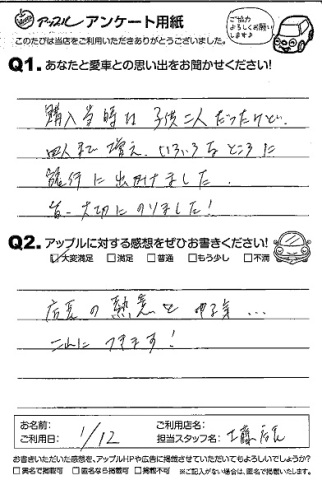 アップル アンケート用紙
ご協力
よろしくお願い
します♪
このたびは当店をご利用いただきありがとうございました。
Q1. あなたと愛車との思い出をお聞かせください!
購入当時は子供二人だったけど、
四人まで増え、いろいろなところに
旅行に出かけました。
大切にのりました!
Q2. アップルに対する感想をぜひお書きください!
☑大変満足 □満足 □普通 □もう少し □不満
店長の熱意と
これにつきます!
お名前:
ご利用店名:
ご利用日: 1/12
担当スタッフ名: 工藤店長
お書きいただいた感想を、アップルHPや広告に掲載させていただいてもよろしいでしょうか?
□実名で掲載可 □匿名なら掲載可 □掲載不可 ※ご記入がない場合は、匿名で掲載いたします。